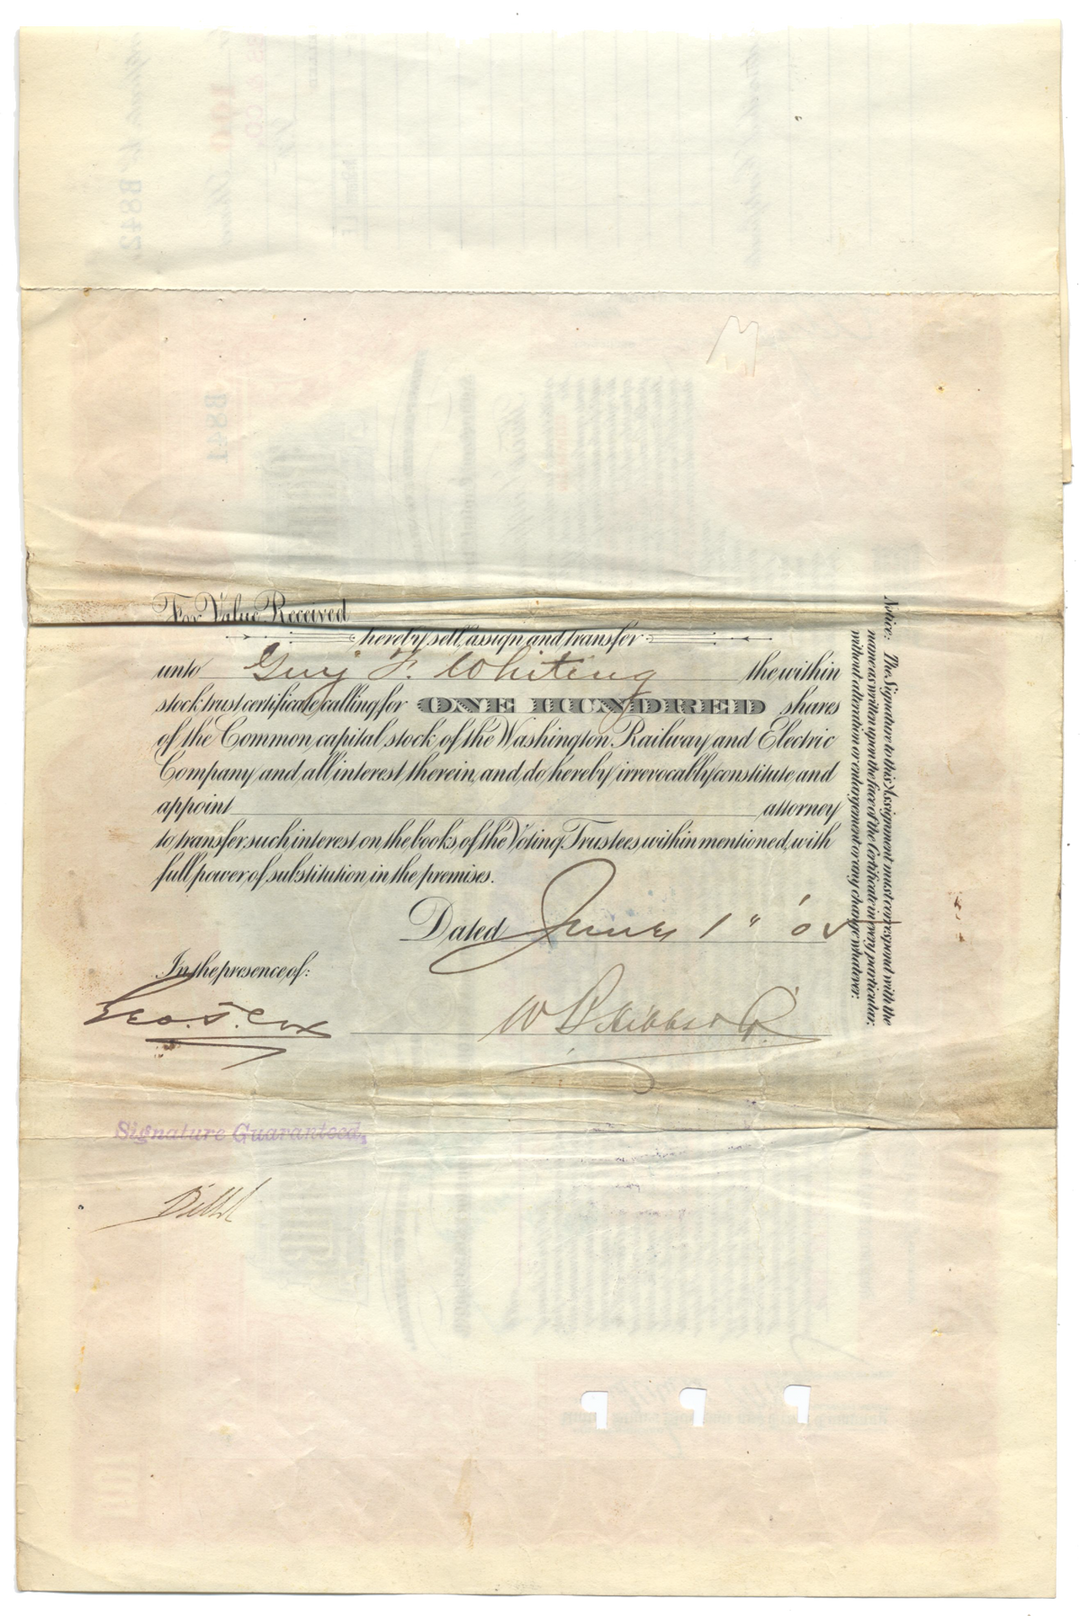 For Value Received
hereby sell, assign and transfer
unto Guy F. Whiting the within
stock trust certificate calling for ONE HUNDRED shares
of the Common capital stock of the Washington Railway and Electric
Company and all interest therein, and do hereby irrevocably constitute and
appoint attorney
to transfer such interest on the books of the Voting Trustees within mentioned, with
full power of substitution in the premises.
Dated June 1" '05
In the presence of:
Geo. T. Cox
W B Hibbs & Co.
Signature Guaranteed,
Notice: The Signature to this Assignment must correspond with the
name as written upon the face of the Certificate in every particular,
without alteration or enlargement or any change whatever.
B842
B841
100